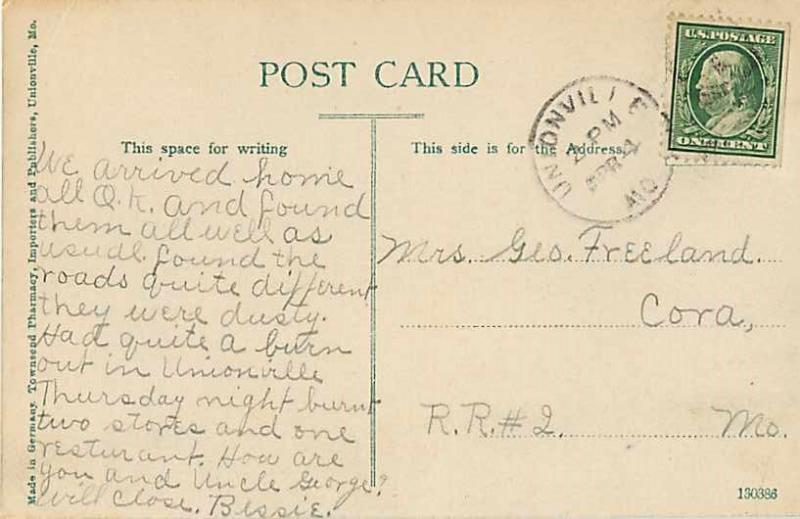 POST CARD
This space for writing
This side is for the Address.
U.S. POSTAGE
ONE CENT
UNIONVILLE
2 PM
APR
MO.
We arrived home
all O.K. and found
them all well as
usual. found the
roads quite different
they were dusty.
Had quite a burn
out in Unionville
Thursday night burnt
two stores and one
resturant. How are
you and Uncle George?
will close. Bessie.
Mrs. Geo. Freeland.
Cora,
R.R.#2. Mo.
Made in Germany. Townsend Pharmacy, Importers and Publishers, Unionville, Mo.
130386